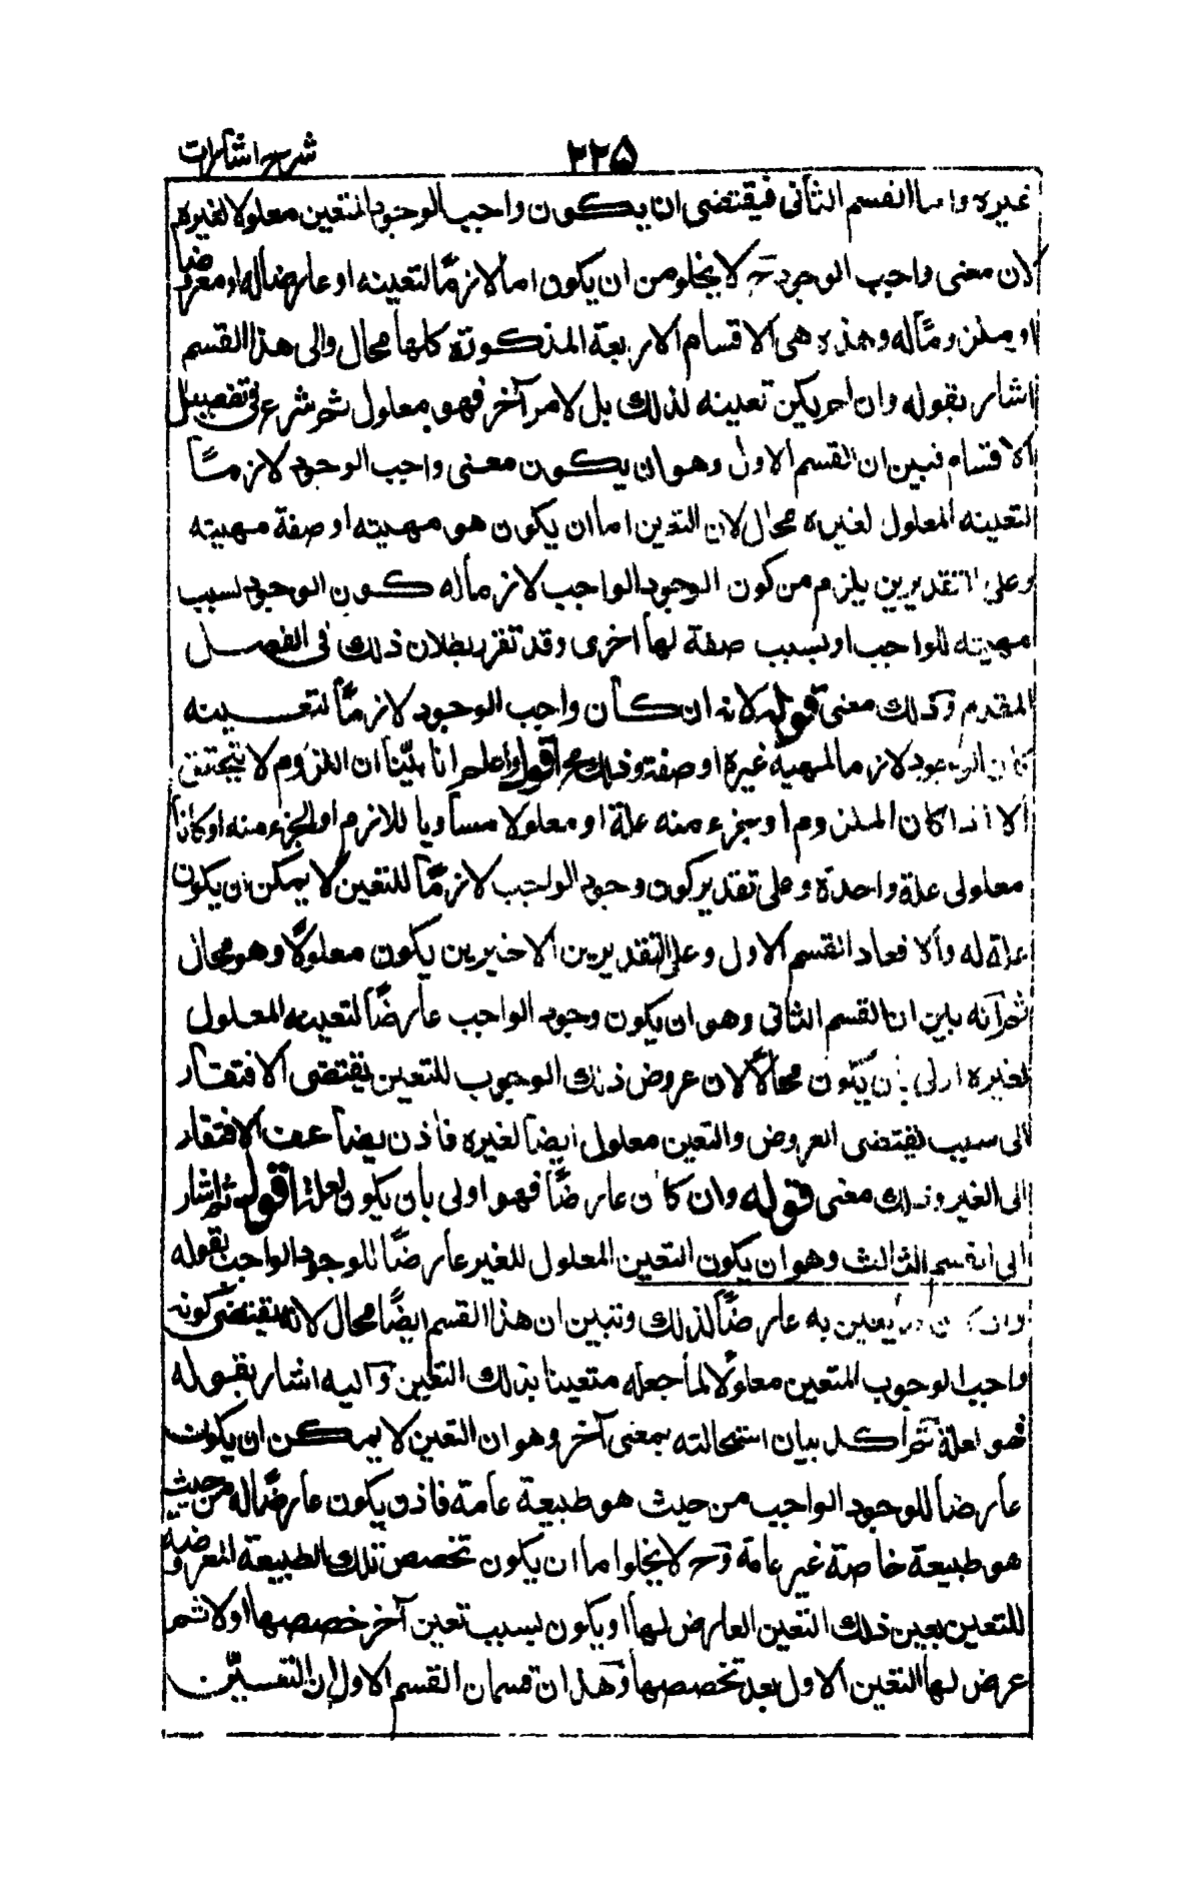 شرح اشارات
٢٢٥
غيره واما القسم الثانى فيقتضى ان يكون واجب الوجود المتعين معلولا لغيره
لان معنى واجب الوجود ح لا يخلو من ان يكون اما لازمًا لتعينه او عارضا له او معروضا
او ملزومًا له وهذه هى الاقسام الاربعة المذكورة كلها محال والى هذا القسم
اشار بقوله وان لم يكن تعينه لذلك بل لامر آخر فهو معلول ثم شرع فى تفصيل
الاقسام فبين ان القسم الاول وهو ان يكون معنى واجب الوجود لازمًا
لتعينه المعلول لغيره محال لان التعين اما ان يكون هو مهيته او صفة مهيته
وعلى التقديرين يلزم من كون الوجود الواجب لازما له كون الوجود بسبب
مهيته للواجب او بسبب صفة لها اخرى وقد تقرر بطلان ذلك فى الفصل
المقدم وذلك معنى قوله لانه ان كان واجب الوجود لازمًا لتعينه
كان الوجود لازما لمهية غيره او صفة وذلك محال اقول واعلم انا بيّنا ان اللزوم لا يتحقق
الا اذا كان الملزوم او جزء منه علة او معلولا مساويا للازم او لجزء منه او كانا
معلولى علة واحدة وعلى تقدير كون وجود الواجب لازمًا للتعين لا يمكن ان يكون
علة له والا فعاد القسم الاول وعلى التقديرين الاخيرين يكون معلولًا وهو محال
ثم انه بين ان القسم الثانى وهو ان يكون وجود الواجب عارضًا لتعينه المعلول
لغيره اولى بان يكون محالًا لان عروض ذلك الوجوب للتعين يقتضى الافتقار
الى سبب يقتضى العروض والتعين معلول ايضا لغيره فاذن يضاعف الافتقار
الى الغير وذلك معنى قوله وان كان عارضًا فهو اولى بان يكون لعلة اقول ثم اشار
الى القسم الثالث وهو ان يكون التعين المعلول للغير عارضًا للوجود الواجب بقوله
وان كان ما يتعين به عارضًا لذلك وتبين ان هذا القسم ايضًا محال لانه يقتضى كونه
واجب الوجوب المتعين معلولًا لما جعله متعينا بذلك التعين واليه اشار بقوله
فهو لعلة ثم اكد بيان استحالته بمعنى آخر وهو ان التعين لا يمكن ان يكون
عارضا للوجود الواجب من حيث هو طبيعة عامة فاذن يكون عارضًا له من حيث
هو طبيعة خاصة غير عامة وح لا يخلو اما ان يكون تخصص تلك الطبيعة المعروضة
للتعين بعين ذلك التعين العارض لها او يكون بسبب تعين آخر خصصها اولا ثم
عرض لها التعين الاول بعد تخصصها وهذان قسمان القسم الاول ان